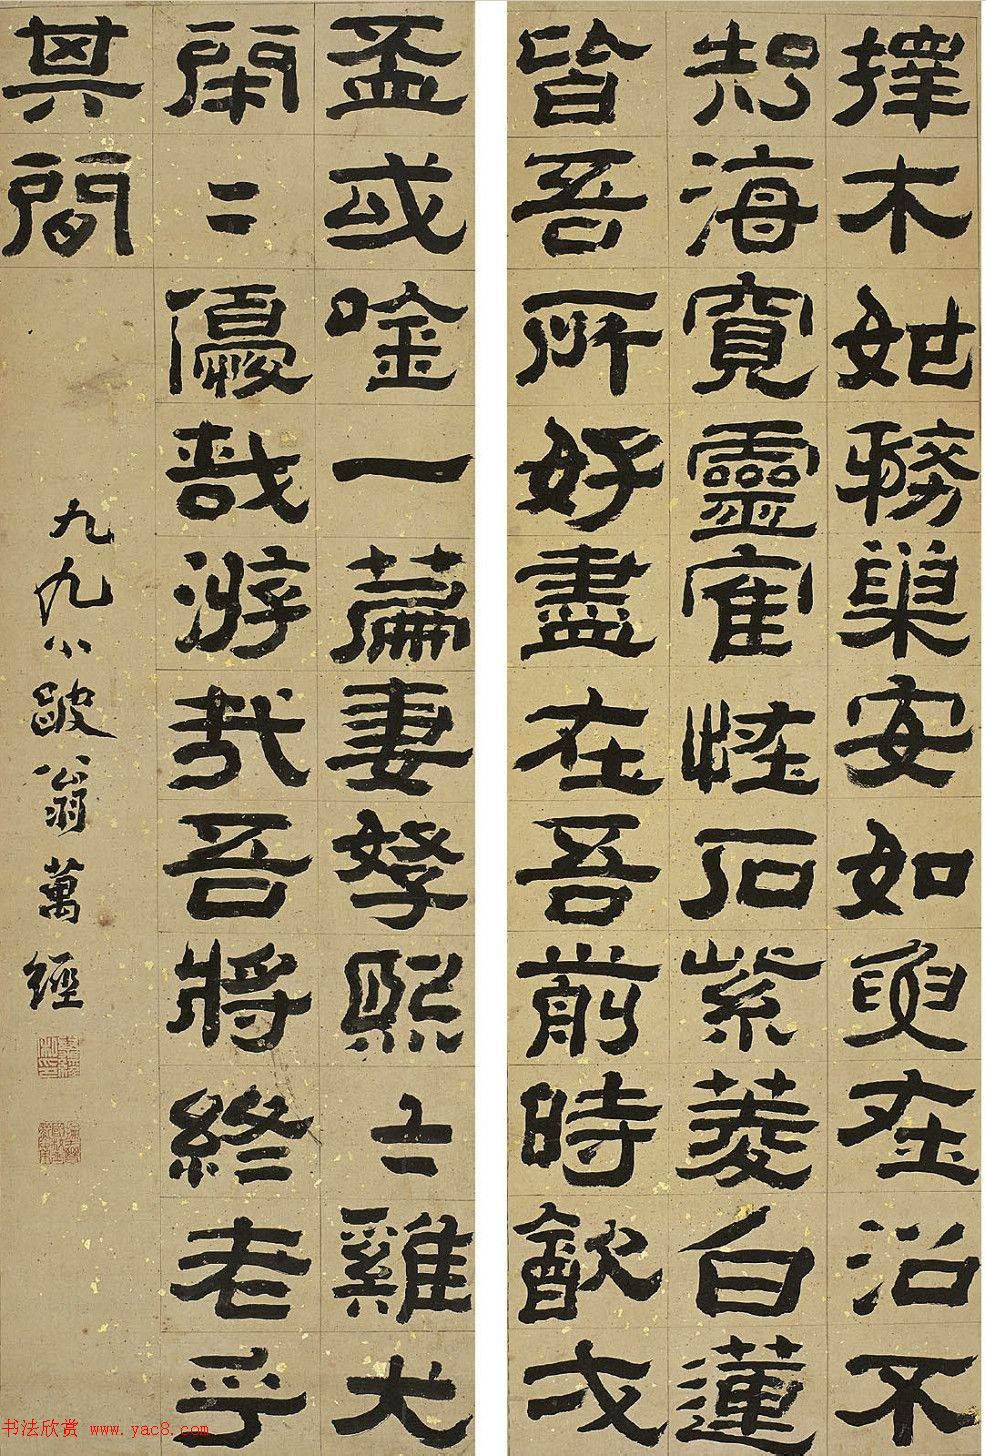 擇木姑務巢安如龜在沼不
知海寬靈隺怪石紫菱白蓮
皆吾所好盡在吾前時飲弌
盃或唫一篇妻孥熙二雞犬
閑二優哉游哉吾將終老乎
其間
九九小跛翁萬經
书法欣赏 www.yac8.com